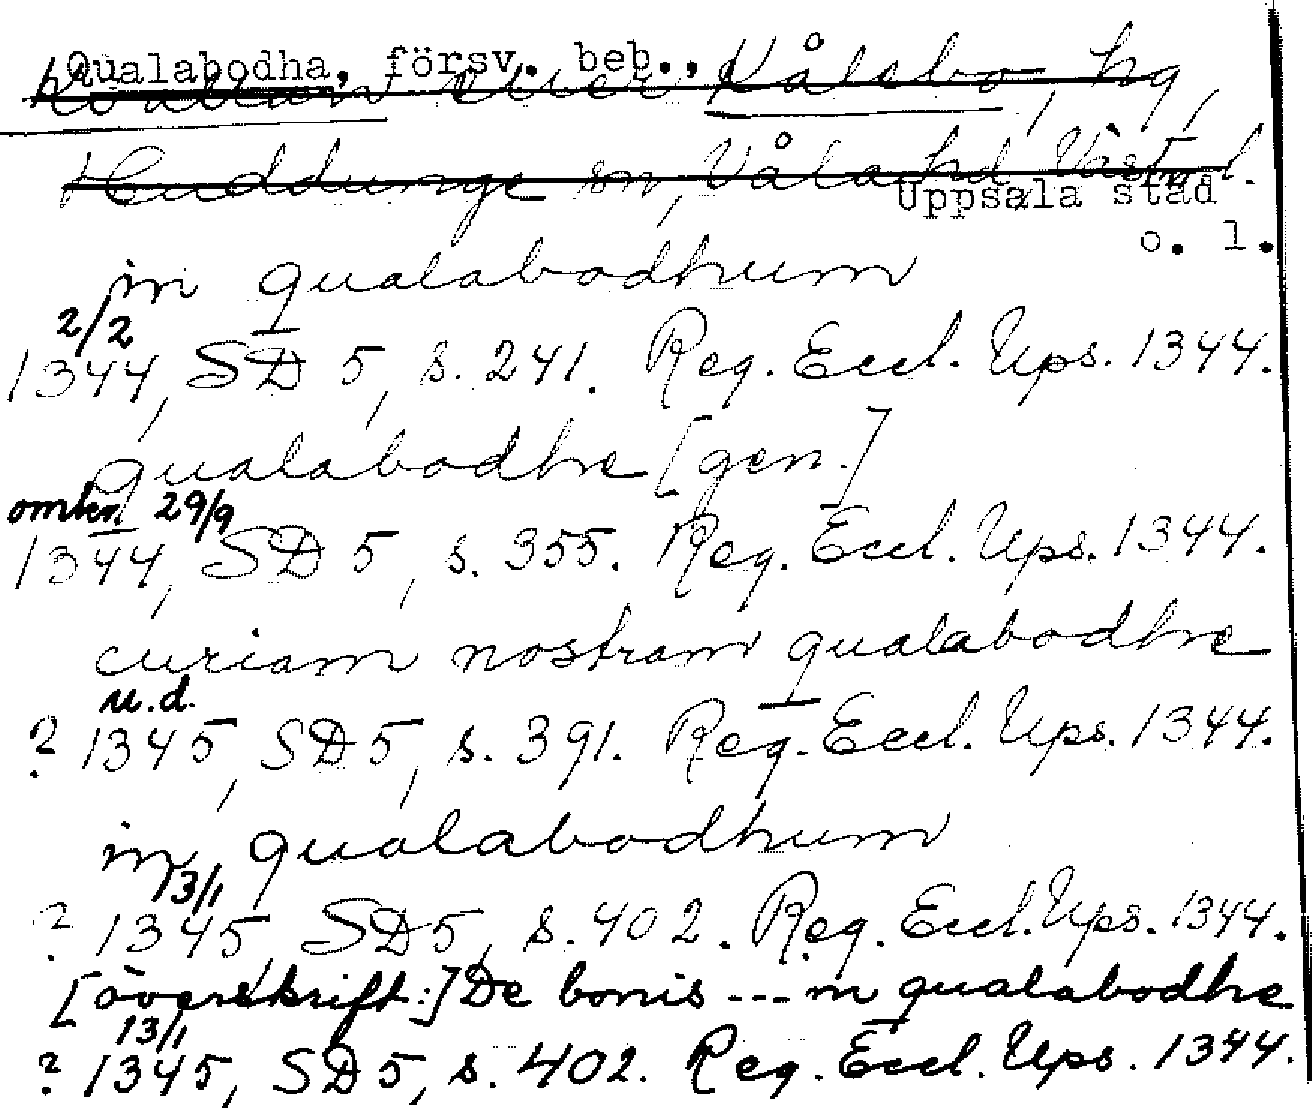 Qualabodha, försv. beb.,
eller Vålabo, hg,
Huddunge sn, Våla hd, Västml.
Uppsala stad
o. l.
in qualabodhum
2/2
1344, SD 5, s. 241. Reg. Eccl. Ups. 1344.
qualabodhe [gen.]
omkr. 29/9
1344, SD 5, s. 355. Reg. Eccl. Ups. 1344.
curiam nostram qualabodhe
u.d.
? 1345, SD 5, s. 391. Reg. Eccl. Ups. 1344.
in qualabodhum
13/1
? 1345, SD 5, s. 402. Reg. Eccl. Ups. 1344.
[överskrift:] De bonis --- in qualabodhe
13/1
? 1345, SD 5, s. 402. Reg. Eccl. Ups. 1344.